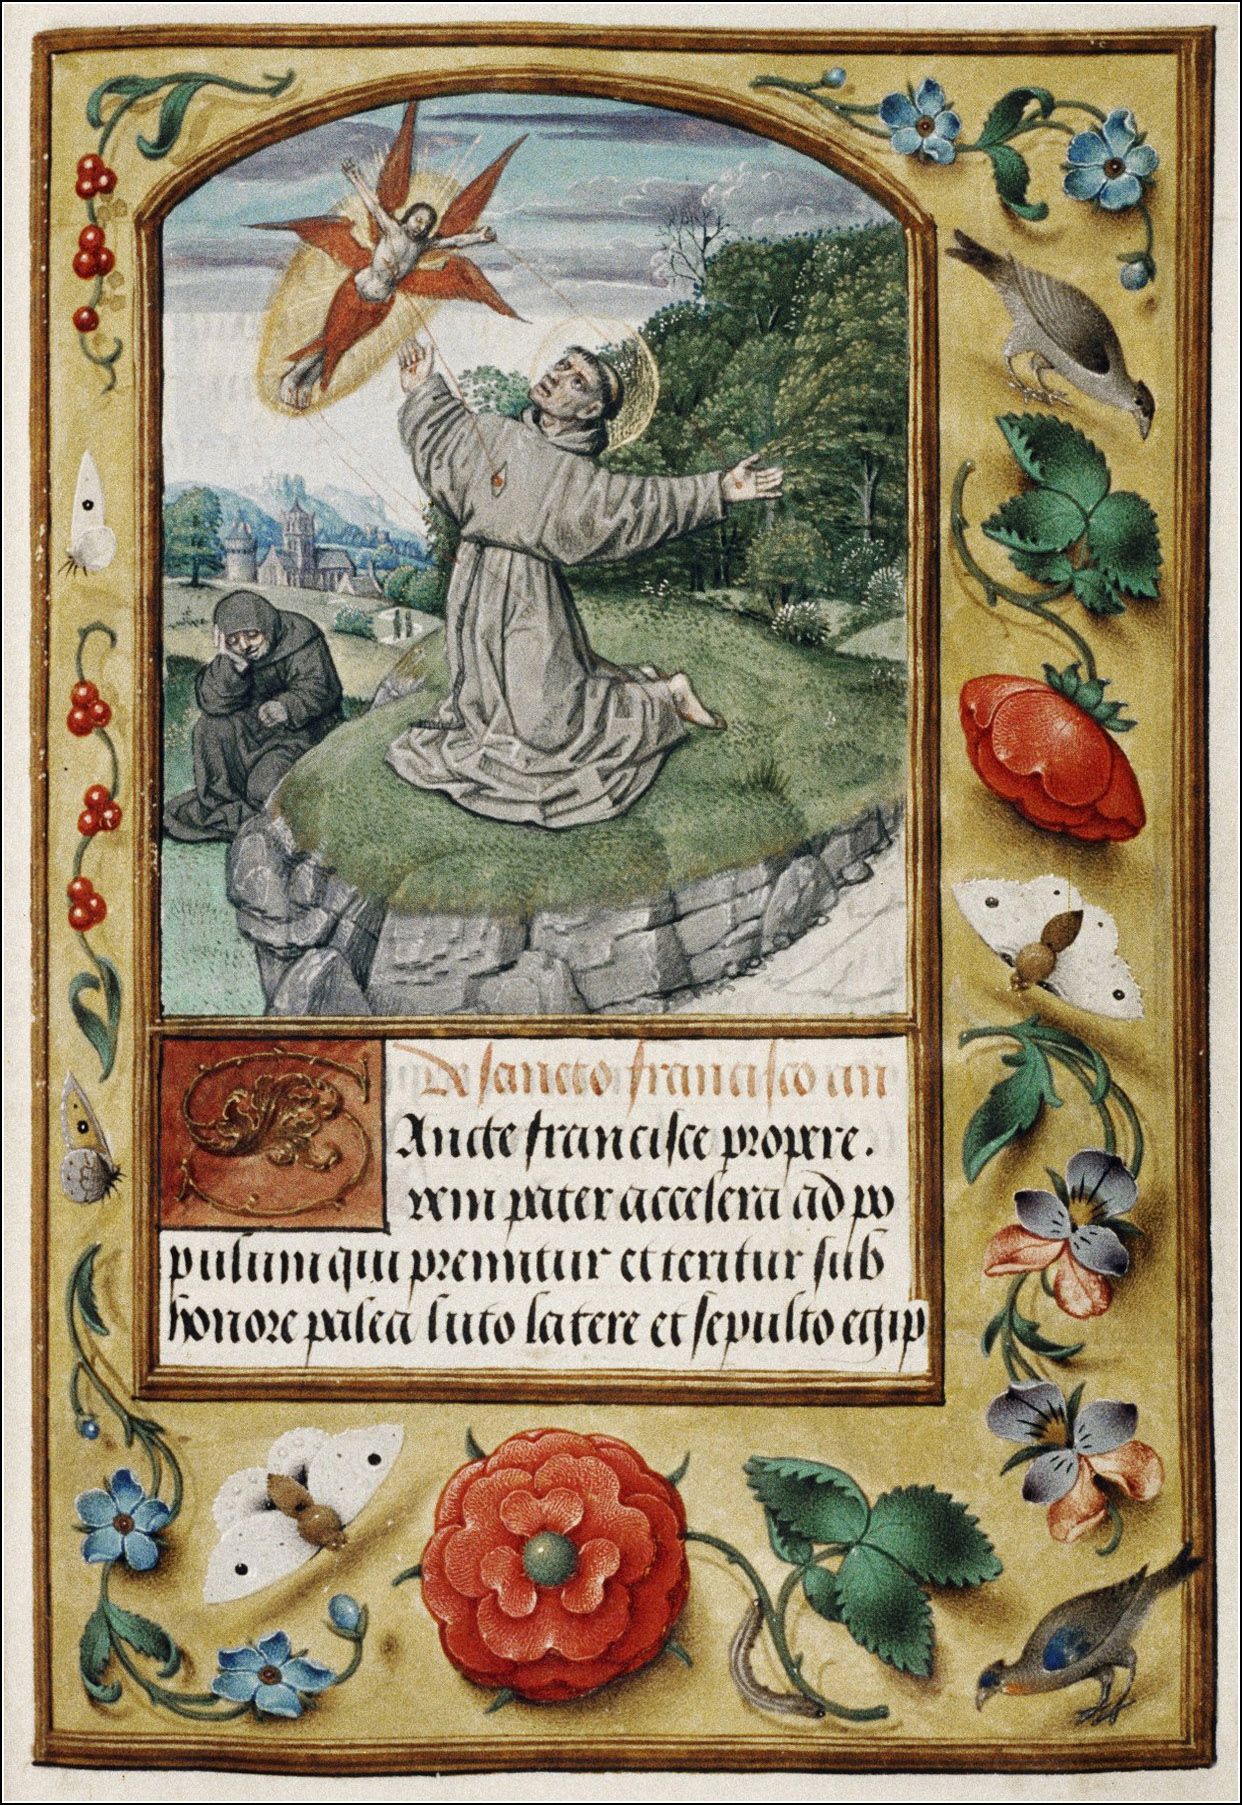 De sancto francisco an
Sancte francisce propere.
veni pater accelera ad po
pulum qui premitur et teritur sub
honore palea luto latere et sepulto egip